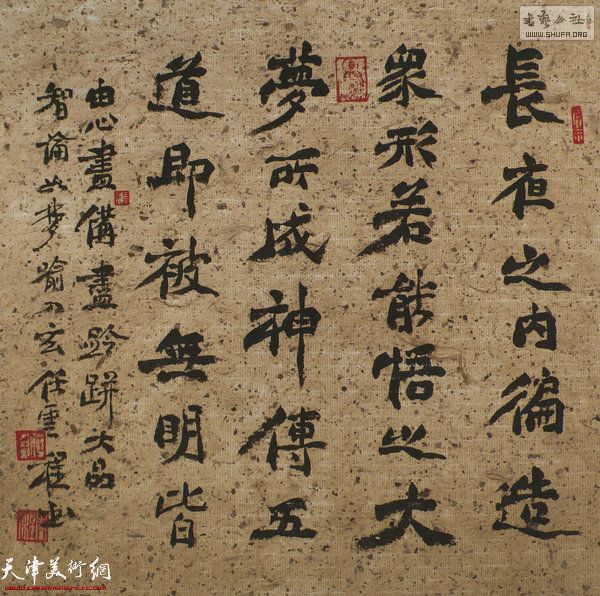 長夜之内徧造
衆形若能悟之大
夢所成神傳五
道即被無明皆
由心畫備盡跉跰大品
智論如夢喻 任雲
書藝公社
WWW.SHUFA.ORG
天津美術網